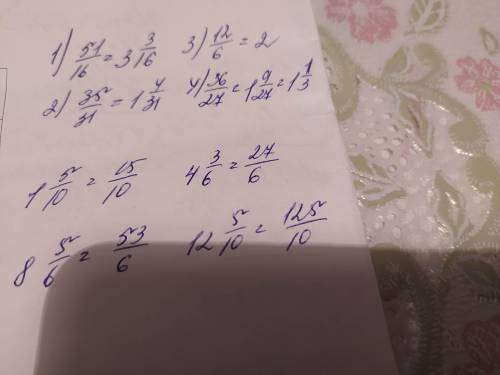 1) 51/16 = 3 3/16 3) 12/6 = 2
2) 35/31 = 1 4/31 4) 36/27 = 1 9/27 = 1 1/3
1 5/10 = 15/10 4 3/6 = 27/6
8 5/6 = 53/6 12 5/10 = 125/10